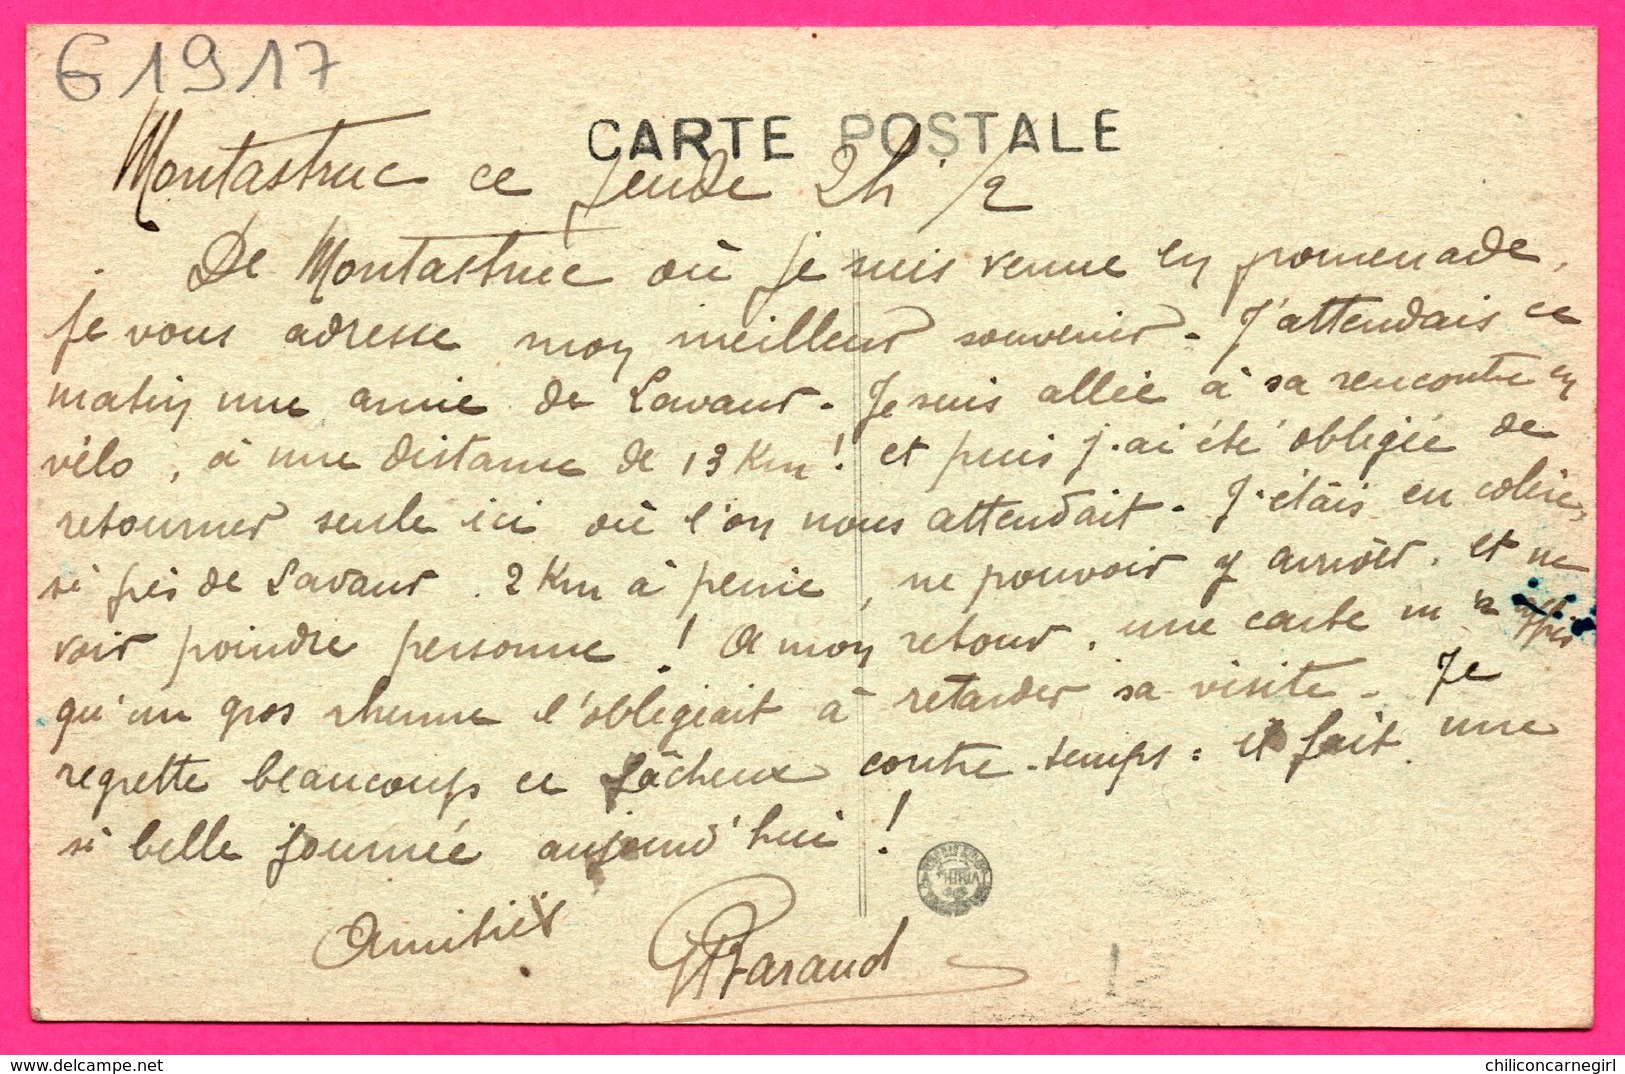 G1917
CARTE POSTALE
Montastruc ce Jeude 2h 1/2
De Montastruc où je suis venue en promenade,
je vous adresse mon meilleur souvenir - J'attendais ce
matin une amie de Lavaur - Je suis allée à sa rencontre en
vélo, à une distance de 13 Km! et puis j'ai été obligée de
retourner seule ici où l'on nous attendait - J'étais en colère,
si près de Lavaur. 2 Km à peine, ne pouvoir y arriver. et ne
voir poindre personne! A mon retour, une carte m'a
qu'un gros rhume l'obligeait à retarder sa visite - Je
regrette beaucoup ce fâcheux contre-temps: il fait une
si belle journée aujourd'hui!
Amitiés
Baraud
delcampe.net
chiliconcarnegirl